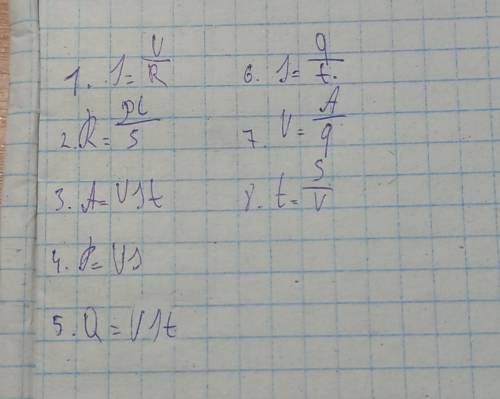 1. I = U/R
2. R = ρl/S
3. A = UIt
4. P = UI
5. Q = UIt
6. I = q/t.
7. U = A/q
8. t = S/V